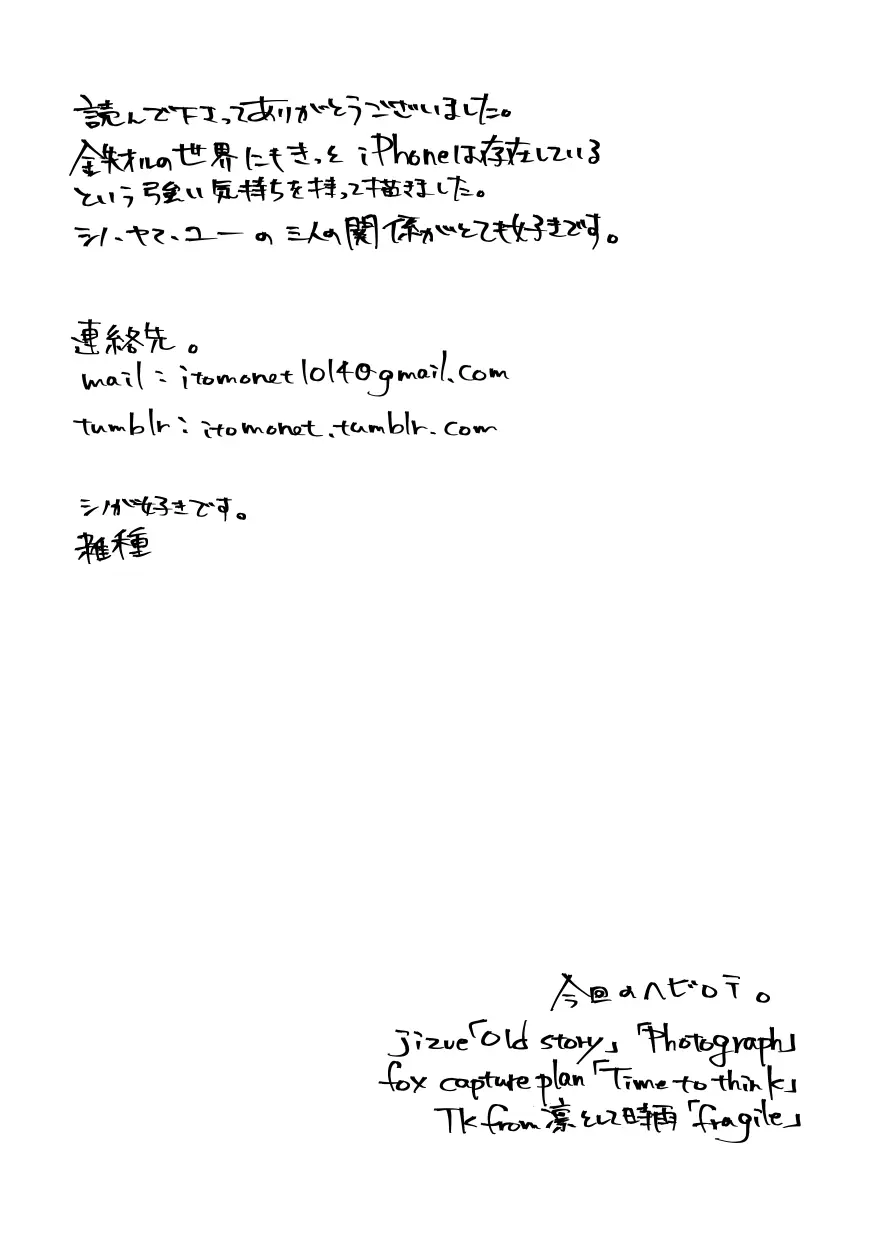 読んで下さってありがとうございました。
鉄オルの世界にもきっと iPhoneは存在している
という強い気持ちを持って描きました。
シノ、ヤマ、ユー の 三人の関係がとても好きです。
連絡先。
mail : itomonet1014@gmail.com
tumblr : itomonet.tumblr.com
シノが好きです。
雑種
今回のヘビロテ。
jizue「Old story」「Photograph」
fox capture plan「Time to think」
TK from 凛として時雨「fragile」